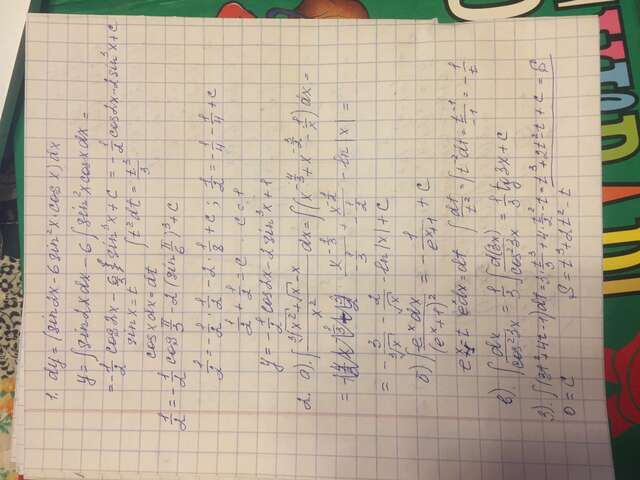 1. dy = (sin 2x - 6 sin²x · cos x) dx
y = ∫ sin 2x dx - 6 ∫ sin²x cos x dx =
= -1/2 cos 2x - 6 · 1/3 sin³x + C = -1/2 cos 2x - 2 sin³x + C
sin x = t ∫ t² dt = t³/3
cos x dx = dt
1/2 = -1/2 cos π/3 - 2 (sin π/6)³ + C
1/2 = -1/2 · 1/2 - 2 · 1/8 + C ; 1/2 = -1/4 - 1/4 + C
1/2 + 1/2 = C C = 1
y = -1/2 cos 2x - 2 sin³x + 1
2. a) ∫ (³√x² + √x - x)/x² dx = ∫ (x^(-4/3) + x^(-3/2) - 1/x) dx =
= x^(-1/3)/(-1/3) + x^(-1/2)/(-1/2) - ln |x| =
= -3/³√x - 2/√x - ln |x| + C
б) ∫ e^x dx/(e^x+1)² = -1/(e^x+1) + C
e^x+1 = t e^x dx = dt ∫ dt/t² = ∫ t⁻² dt = t⁻¹/-1 = -1/t
в). ∫ dx/cos²3x = 1/3 ∫ d(3x)/cos²3x = 1/3 tg 3x + C
3). ∫ (3t² + 4t - 1) dt = 3 t³/3 + 4 · t²/2 - t = t³ + 2t² - t + C = S
0 = C S = t³ + 2t² - t